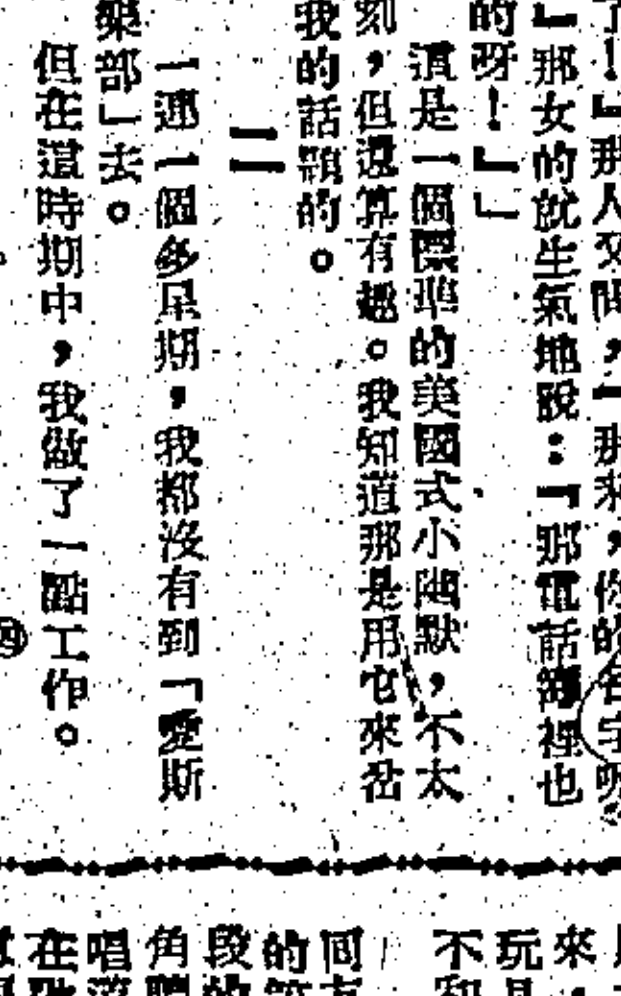 了！』那人又問，『那末，你的名字呢
』那女的就生氣地說：『那電話簿裡也
的呀！』」
這是一個標準的美國式小幽默，不太
刻，但還算有趣。我知道那是用它來岔
我的話頭的。
二
一連一個多星期，我都沒有到「愛斯
樂部」去。
但在這時期中，我做了一點工作。
四
來
玩
不
同
的
段的
角
唱
在